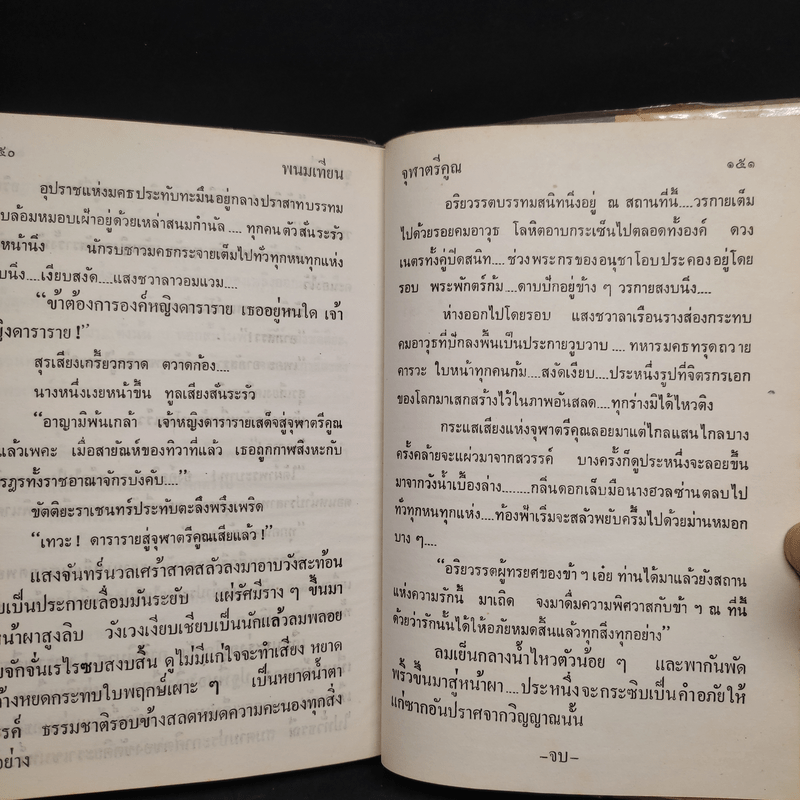 ๕๐
พนมเทียน
อุปราชแห่งมคธประทับทะมึนอยู่กลางปราสาทบรรทม
บล้อมหมอบเฝ้าอยู่ด้วยเหล่าสนมกำนัล.... ทุกคนตัวสั่นระรัว
หน้านิ่ง นักรบชาวมคธกระจายเต็มไปทั่วทุกหนทุกแห่ง
บนิ่ง....เงียบสงัด....แสงชวาลาวอมแวม....
“ข้าต้องการองค์หญิงดาราราย เธออยู่หนใด เจ้า
ญิงดาราราย !”
สุรเสียงเกรี้ยวกราด ตวาดก้อง....
นางหนึ่งเงยหน้าขึ้น ทูลเสียงสั่นระรัว
“อาญามิพ้นเกล้า เจ้าหญิงดารารายเสด็จสู่จุฬาตรีคูณ
แล้วเพคะ เมื่อสายัณห์ของทิวาที่แล้ว เธอถูกกาพสิงหะกับ
รฎรทั้งราชอาณาจักรบังคับ....”
ขัตติยะราเชนทร์ประทับตะลึงพรึงเพริด
“เทวะ ! ดารารายสู่จุฬาตรีคูณเสียแล้ว !”
แสงจันทร์นวลเศร้าสาดสลัวลงมาอาบวังสะท้อน
ยเป็นประกายเลื่อมมันระยับ แผ่รัศมีราง ๆ ขึ้นมา
หน้าผาสูงลิบ วังเวงเงียบเชียบเป็นนักแล้วลมพลอย
ยจักจั่นเรไรซบสงบสิ้น ดูไม่มีแก่ใจจะทำเสียง หยาด
ค้างหยดกระทบใบพฤกษ์เผาะ ๆ เป็นหยาดน้ำตา
รรค์ ธรรมชาติรอบข้างสลดหมดความคะนองทุกสิ่ง
อย่าง
จุฬาตรีคูณ
๑๕๑
อริยวรรตบรรทมสนิทนิ่งอยู่ ณ สถานที่นี้....วรกายเต็ม
ไปด้วยรอยคมอาวุธ โลหิตอาบกระเซ็นไปตลอดทั้งองค์ ดวง
เนตรทั้งคู่ปิดสนิท.... ช่วงพระกรของอนุชาโอบประคองอยู่โดย
รอบ พระพักตร์ก้ม....ดาบปักอยู่ข้าง ๆ วรกายสงบนิ่ง....
ห่างออกไปโดยรอบ แสงชวาลาเรือนรางส่องกระทบ
คมอาวุธที่ปักลงพื้นเป็นประกายวูบวาบ .... ทหารมคธทรุดถวาย
คารวะ ใบหน้าทุกคนก้ม....สงัดเงียบ....ประหนึ่งรูปที่จิตรกรเอก
ของโลกมาเสกสร้างไว้ในภาพอันสลด....ทุกร่างมิได้ไหวติง
กระแสเสียงแห่งจุฬาตรีคูณลอยมาแต่ไกลแสนไกลบาง
ครั้งคล้ายจะแผ่วมาจากสวรรค์ บางครั้งก็ดูประหนึ่งจะลอยขึ้น
มาจากวังน้ำเบื้องล่าง........กลิ่นดอกเล็บมือนางฮวลซ่านตลบไป
ทั่วทุกหนทุกแห่ง....ท้องฟ้าเริ่มจะสลัวพยับครึ้มไปด้วยม่านหมอก
บาง ๆ....
“อริยวรรตผู้ทรยศของข้า ฯ เอ๋ย ท่านได้มาแล้วยังสถาน
แห่งความรักนี้ มาเถิด จงมาดื่มความพิศวาสกับข้า ฯ ณ ที่นี้
ด้วยว่ารักนั้นได้ให้อภัยหมดสิ้นแล้วทุกสิ่งทุกอย่าง”
ลมเย็นกลางน้ำไหวตัวน้อย ๆ และพากันพัด
พริ้วขึ้นมาสู่หน้าผา....ประหนึ่งจะกระซิบเป็นคำอภัยให้
แก่ซากอันปราศจากวิญญาณนั้น
–จบ–